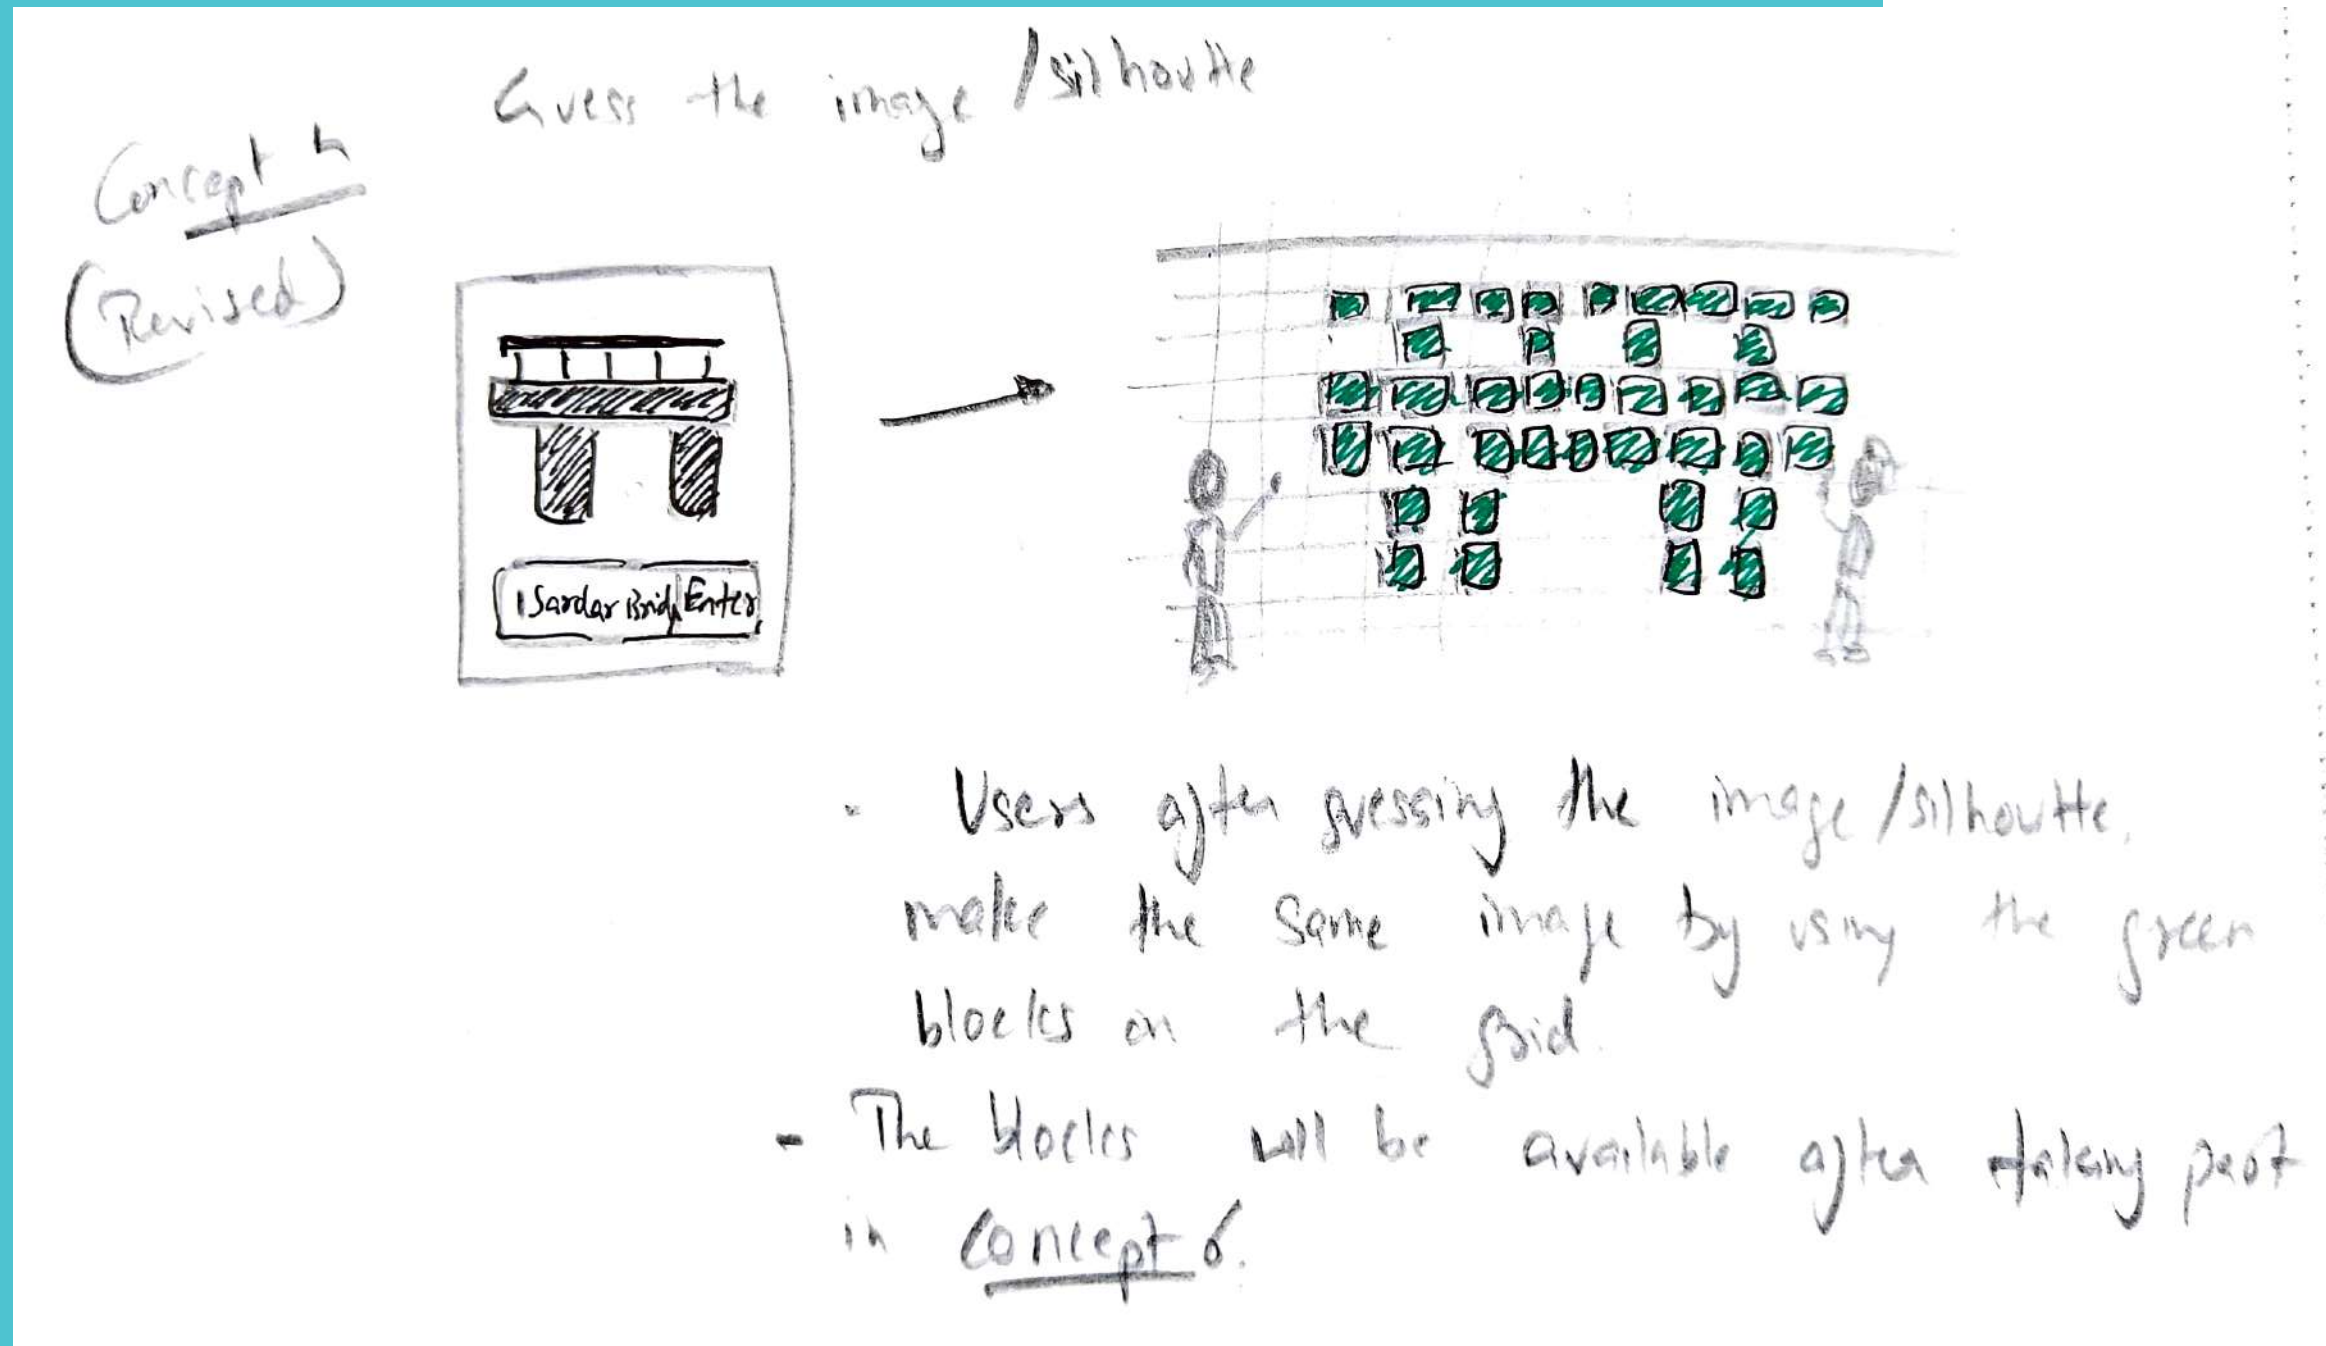 Guess the image /silhoutte
Concept 4
(Revised)
Sardar Bridg Enter
- Users after guessing the image /silhoutte,
make the same image by using the green
blocks on the grid.
- The blocks will be available after taking part
in Concept 6.